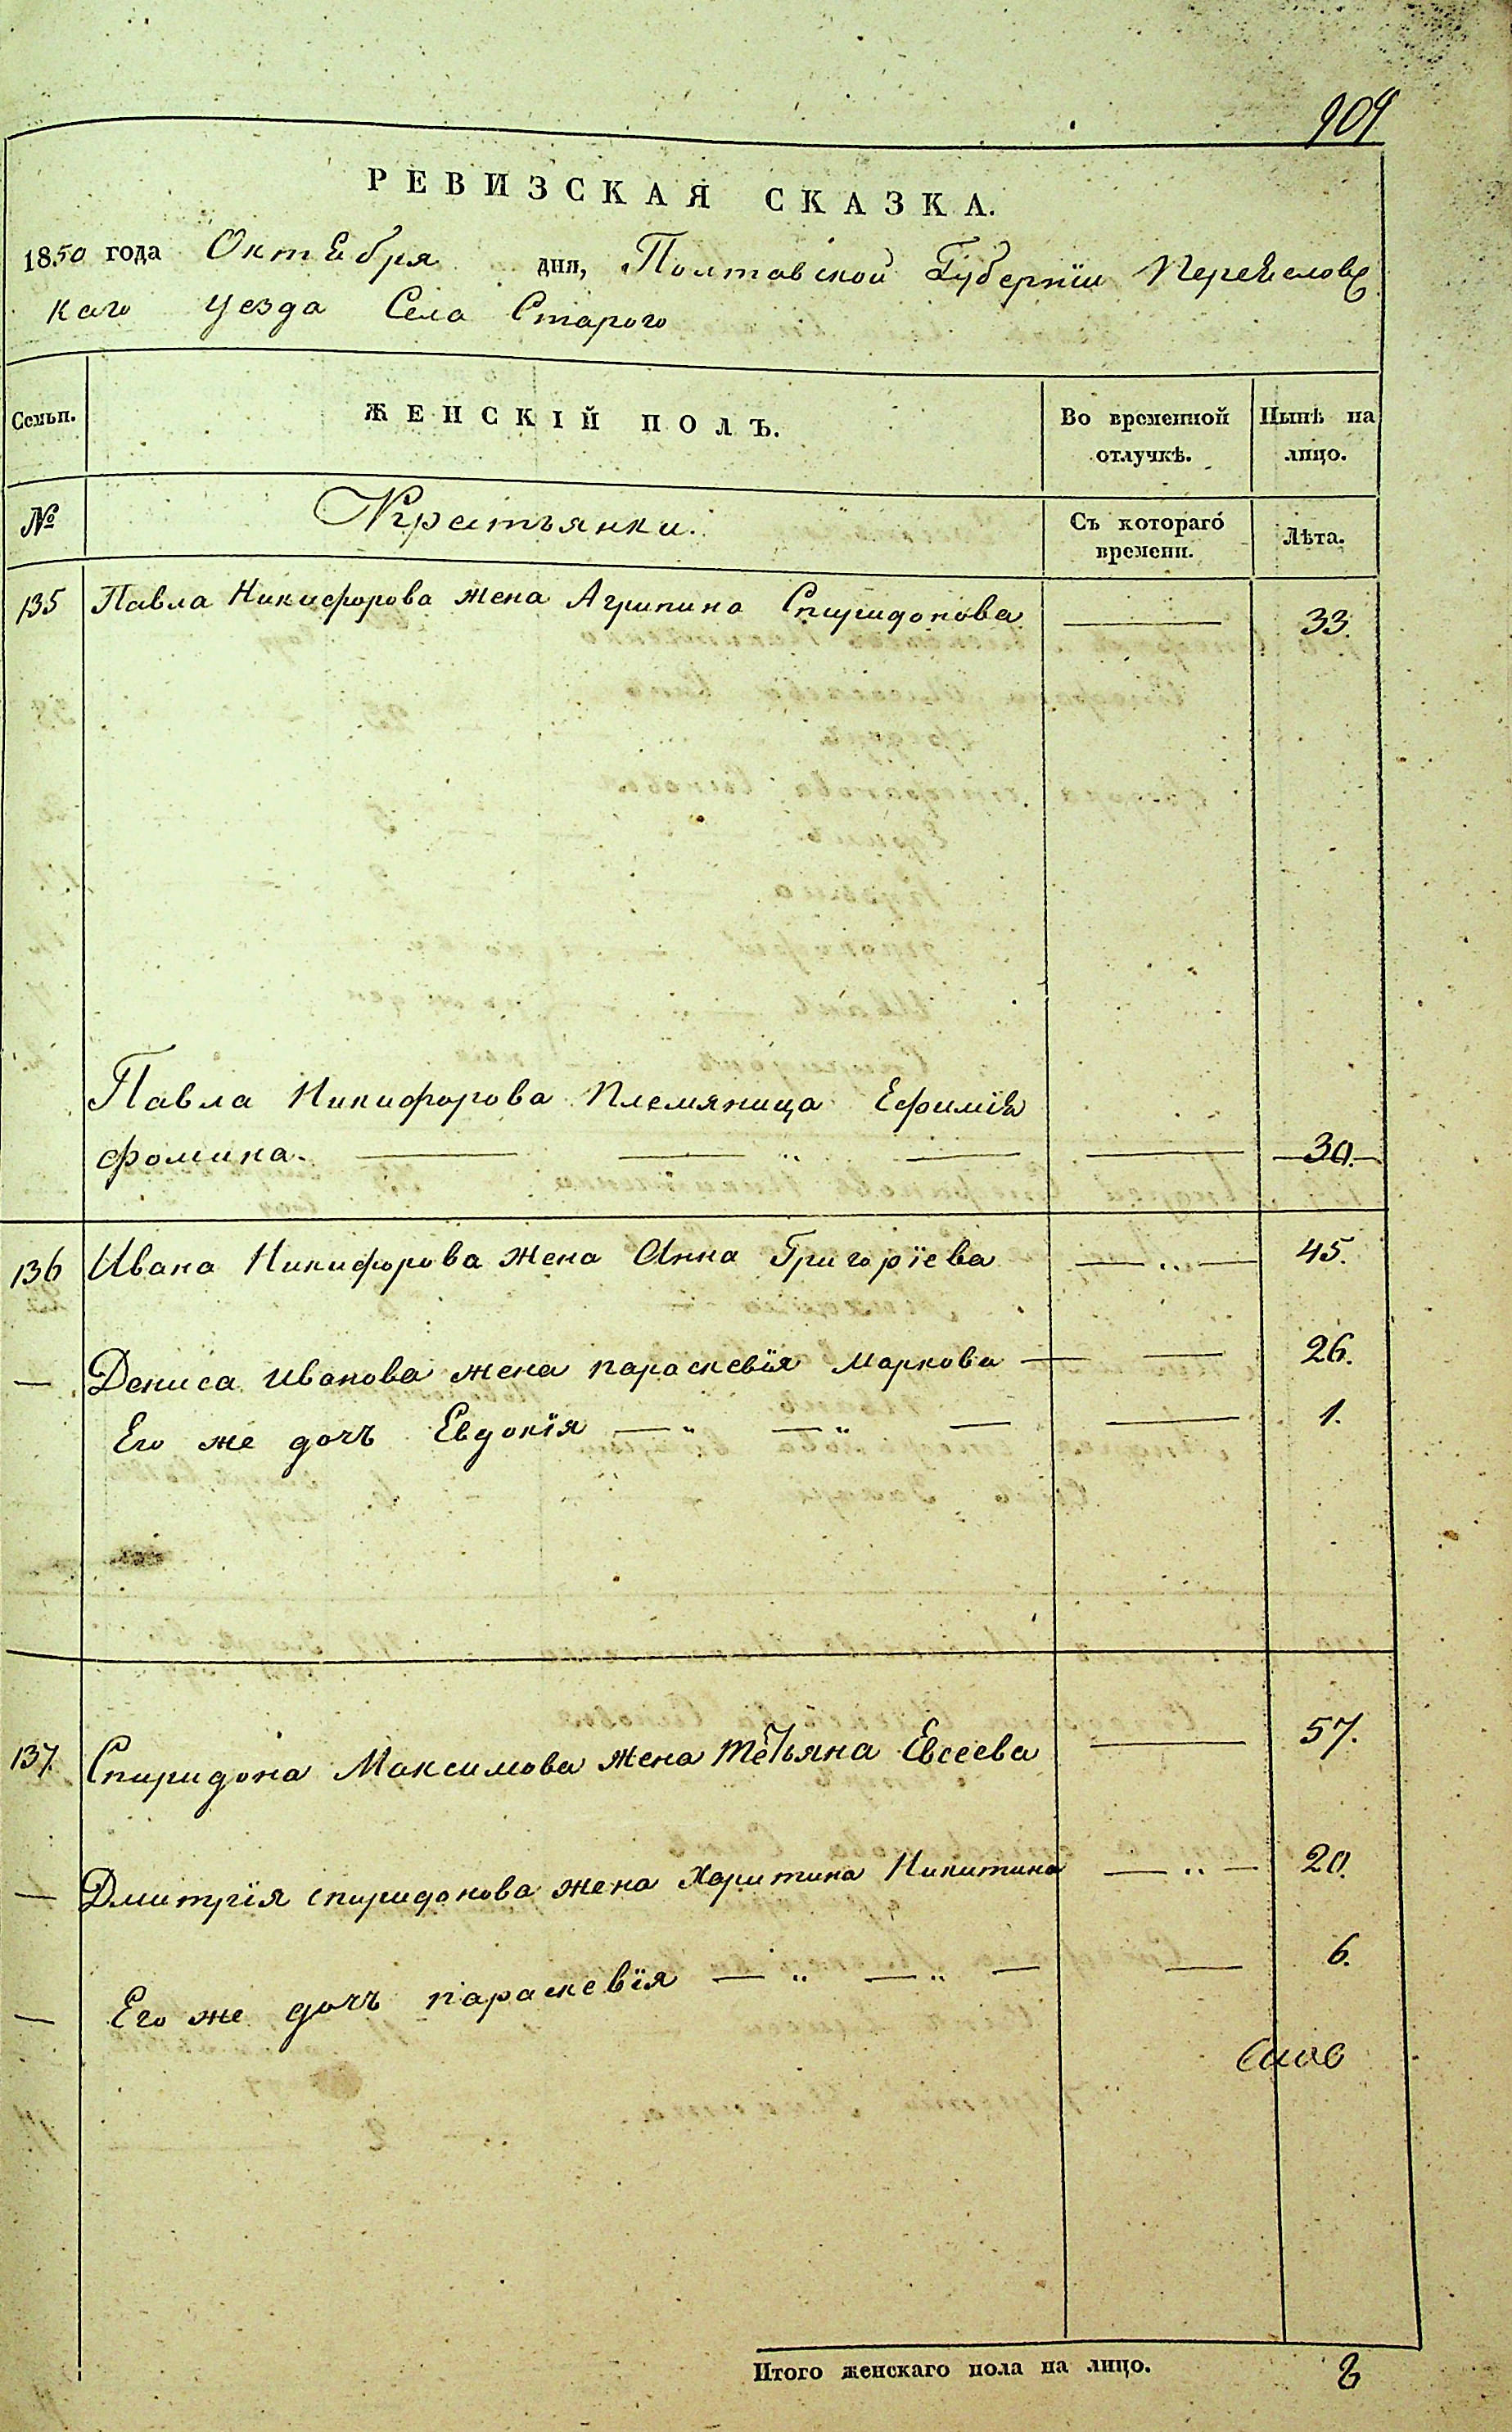 909
РЕВИЗСКАЯ СКАЗКА.
1850 года Октября дня, Полтавской Губернїи Переяславс
каго уезда Села Старого
Семьи. ЖЕНСКІЙ ПОЛЪ. Во временной отлучкѣ. Нынѣ на лицо.
№ Крестьянки. Съ котораго времени. Лѣта.
135 Павла Никифорова жена Агрипина Спиридонова — 33.
Павла Никифорова Племяница Ефимія
Фомина. — — — — 30.
136 Ивана Никифорова жена Анна Григорїева — „ — 45.
— Дениса Иванова жена параскевїя Маркова — — 26.
Его же дочъ Евдокїя — „ — „ — — 1.
137. Спиридона Максимова жена Тетьяна Евсеева — 57.
— Дмитрїя спиридонова жена Харитина Никитина — „ — 20.
— Его же дочъ параскевїя — „ — „ — — 6.
Итого женскаго пола на лицо. 8